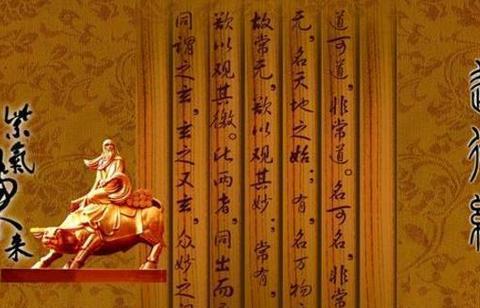 道德經
道可道，非常道。名可名，非常
无，名天地之始；有，名万物
故常无，欲以观其妙；常有，
欲以观其徼。此两者，同出而
同谓之玄，玄之又玄，众妙之
紫氣東来